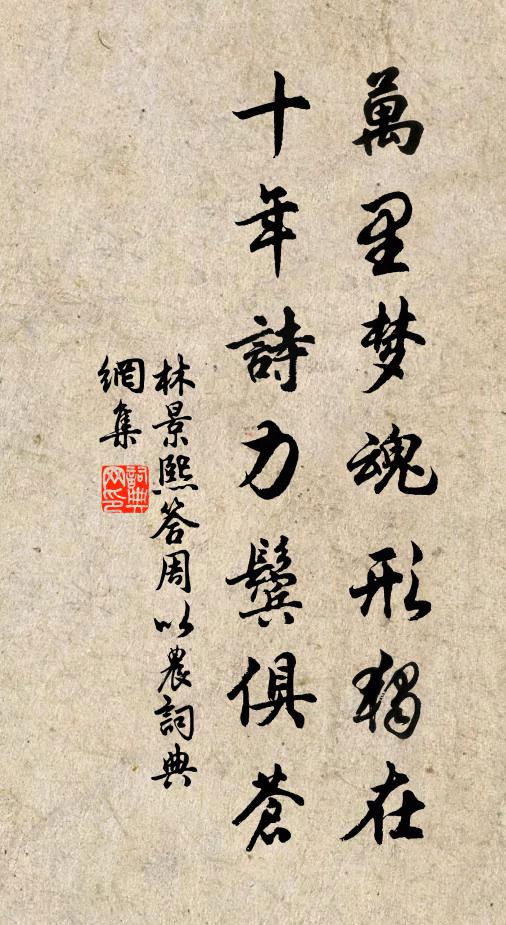 萬里梦魂形獨在
十年詩力鬓俱蒼
林景熙答周以農詞典
網集
詞典
网印